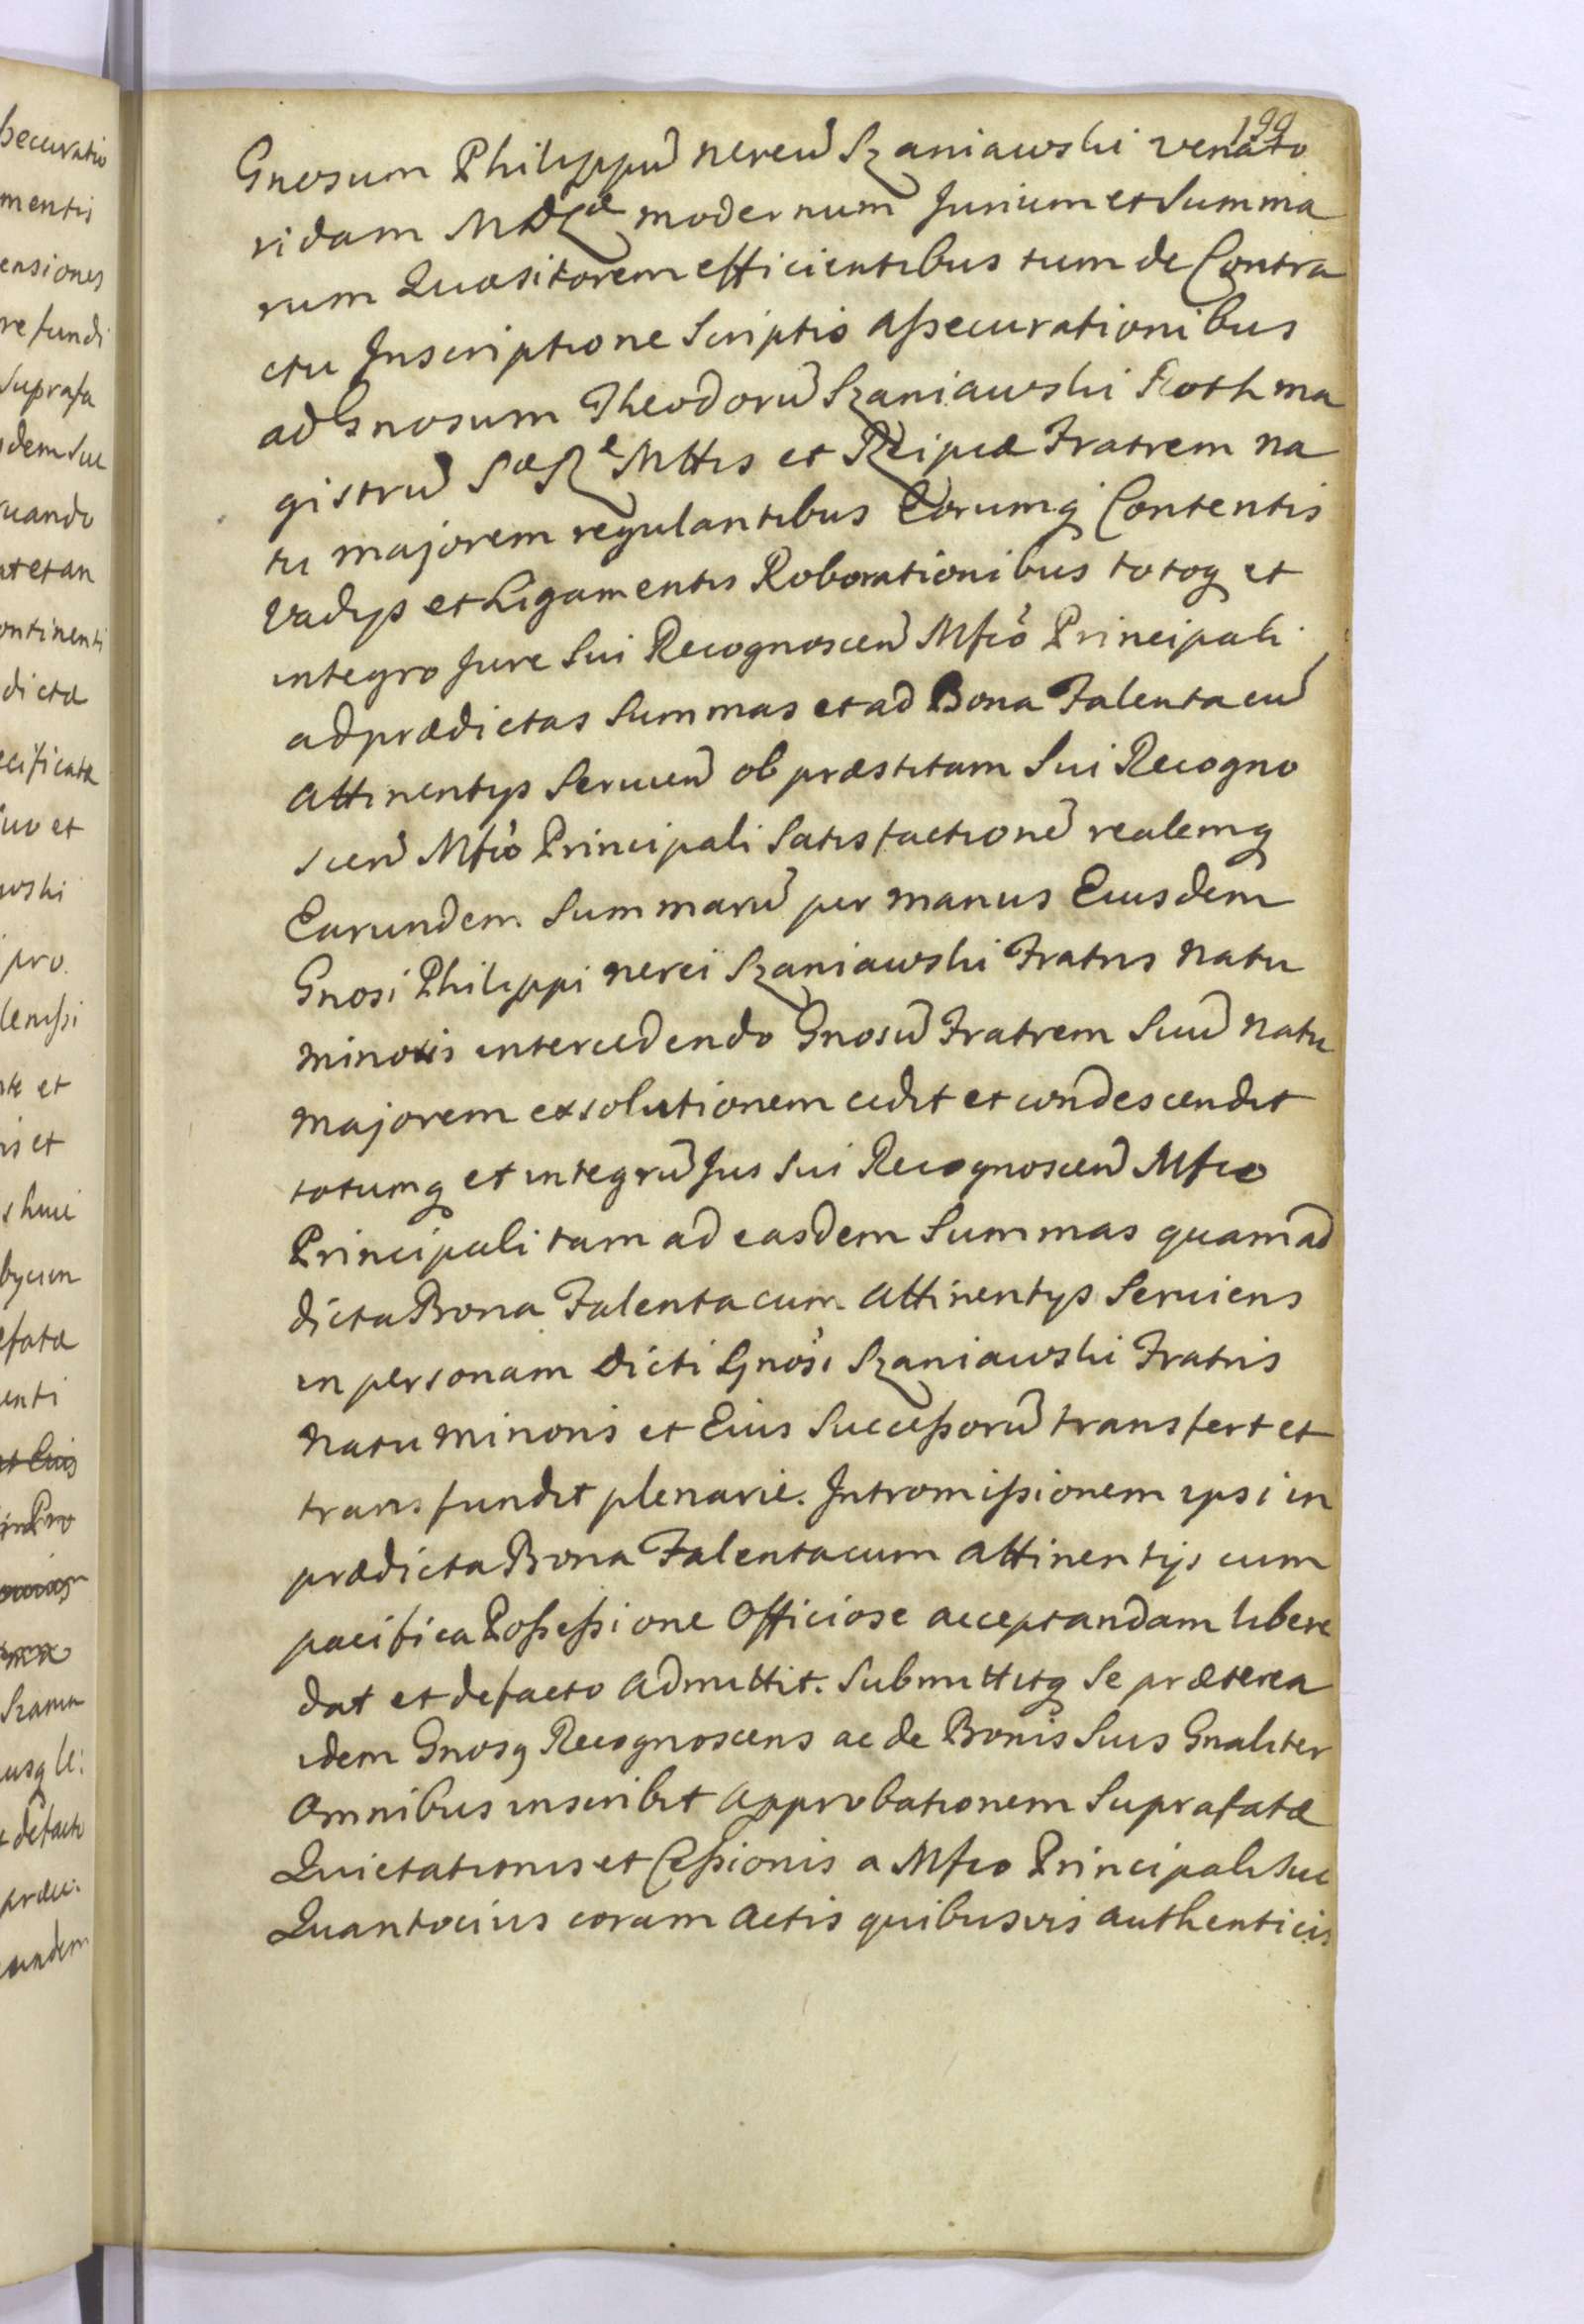 199
Gnosum Philippu͂ nereu͂ Szaniawski venato
ridam modernum Jurium et Summa
rum Quæsitorem efficientibus tum de Contra
ctu Inscriptione Scriptis Aſsecurationibus
ad Gnosum Theodoru͂ Szaniawski Roth ma
gistru͂ Mttis et Reipcæ Fratrem na
tu majorem regulantibus Eorumq Contentis
Vadÿs et Ligamentis Roborationibus totoq et
integro Jure Sui Recognoscen͂ Mfco Principali
ad prædictas Summas et ad Bona Falenta cu͂
Attinentÿs Seruien͂ ob præstitam Sui Recogno
scen͂ Mfco Principali Satisfactione͂ realemq
Earundem Summaru͂ per manus Eiusdem
Gnosi Philippi nerei Szaniawski Fratris Natu
minoris intercedendo Gnosu͂ Fratrem Suu͂ Natu
majorem exsolutionem cedit et condescendit
totumq et integru͂ Jus Sui Recognoscen͂ Mfco
Principali tam ad easdem Summas quam ad
dicta Bona Falenta cum Attinentÿs Seruiens
in personam Dicti Gnosi Szaniawski Fratris
Natu minoris et Eius Succeſsoru͂ transfert et
transfundit plenarie. Intromiſsionem ipsi in
prædicta Bona Falenta cum Attinentijs cum
pacifica Poſseſsione Officiose acceptandam libere
dat et defacto Admittit. Submittitq Se præterea
idem Gnosq Recognoscens ac de Bonis Suis Gnaliter
Omnibus inscribit Approbationem Suprafatæ
Quietationis et Ceſsionis a Mfco Principali Suc
Quantocius coram Actis quibusvis authenticis